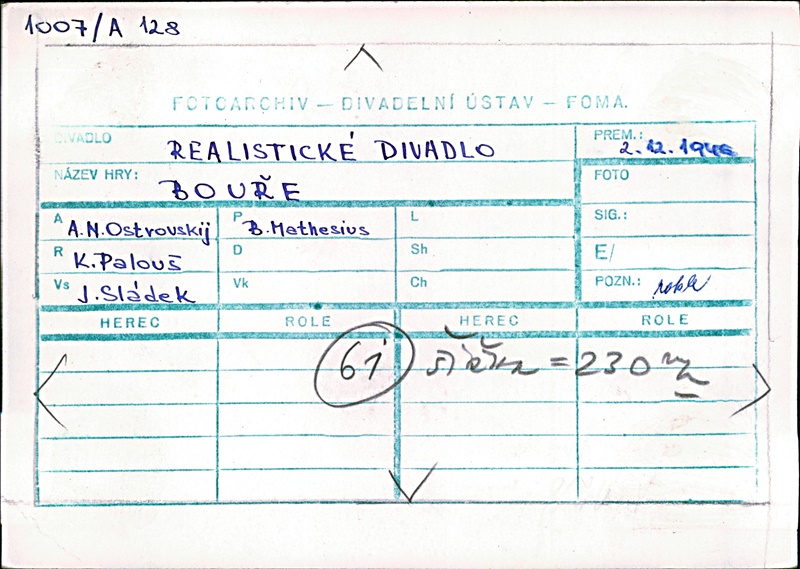 1007/A 128
FOTOARCHIV – DIVADELNÍ ÚSTAV – FOMA.
DIVADLO REALISTICKÉ DIVADLO
PREM.: 2.12.1946
NÁZEV HRY: BOUŘE
FOTO
A A.N.Ostrovskij P B.Mathesius L
SIG.:
R K.Palouš D Sh
E/
Vs J.Sládek Vk Ch
POZN.:
HEREC ROLE HEREC ROLE
61 šířka = 230